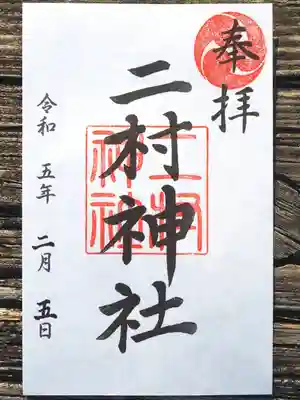 奉拝
二村神社
二村神社
令和五年二月五日